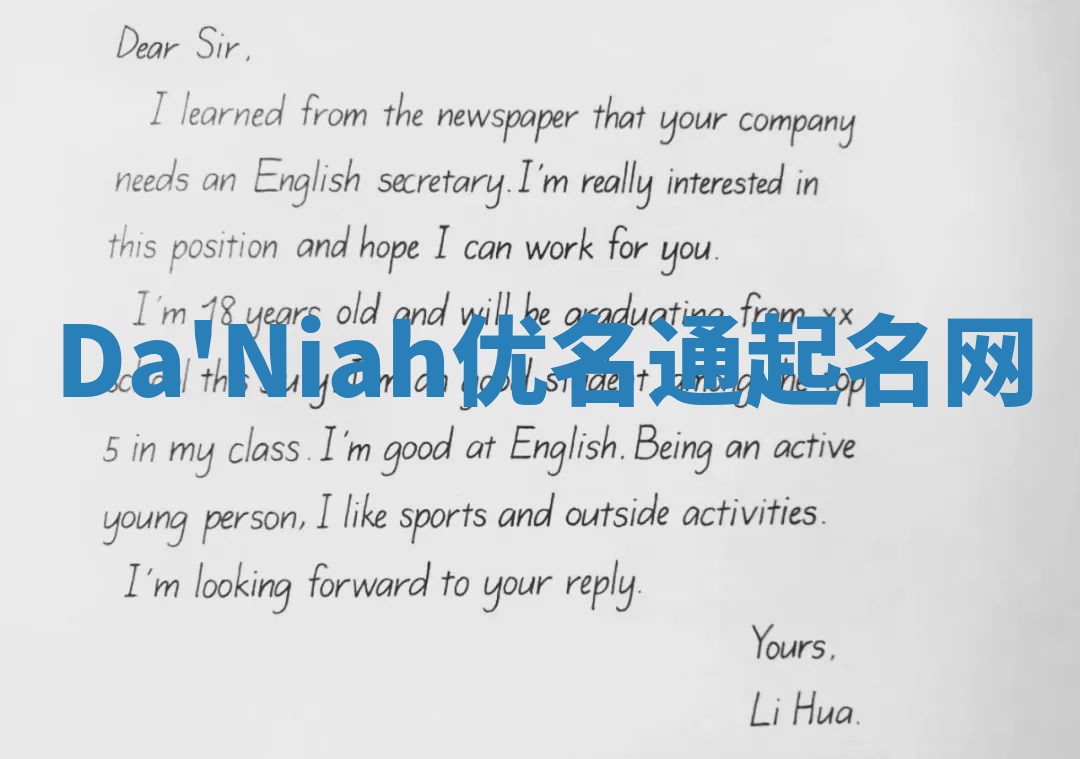 Dear Sir,
I learned from the newspaper that your company
needs an English secretary. I'm really interested in
this position and hope I can work for you.
I'm 18 years old and will be graduating from xx
Da'Niah优名通起名网
school this July. I'm an good student, among the top
5 in my class. I'm good at English. Being an active
young person, I like sports and outside activities.
I'm looking forward to your reply.
Yours,
Li Hua.